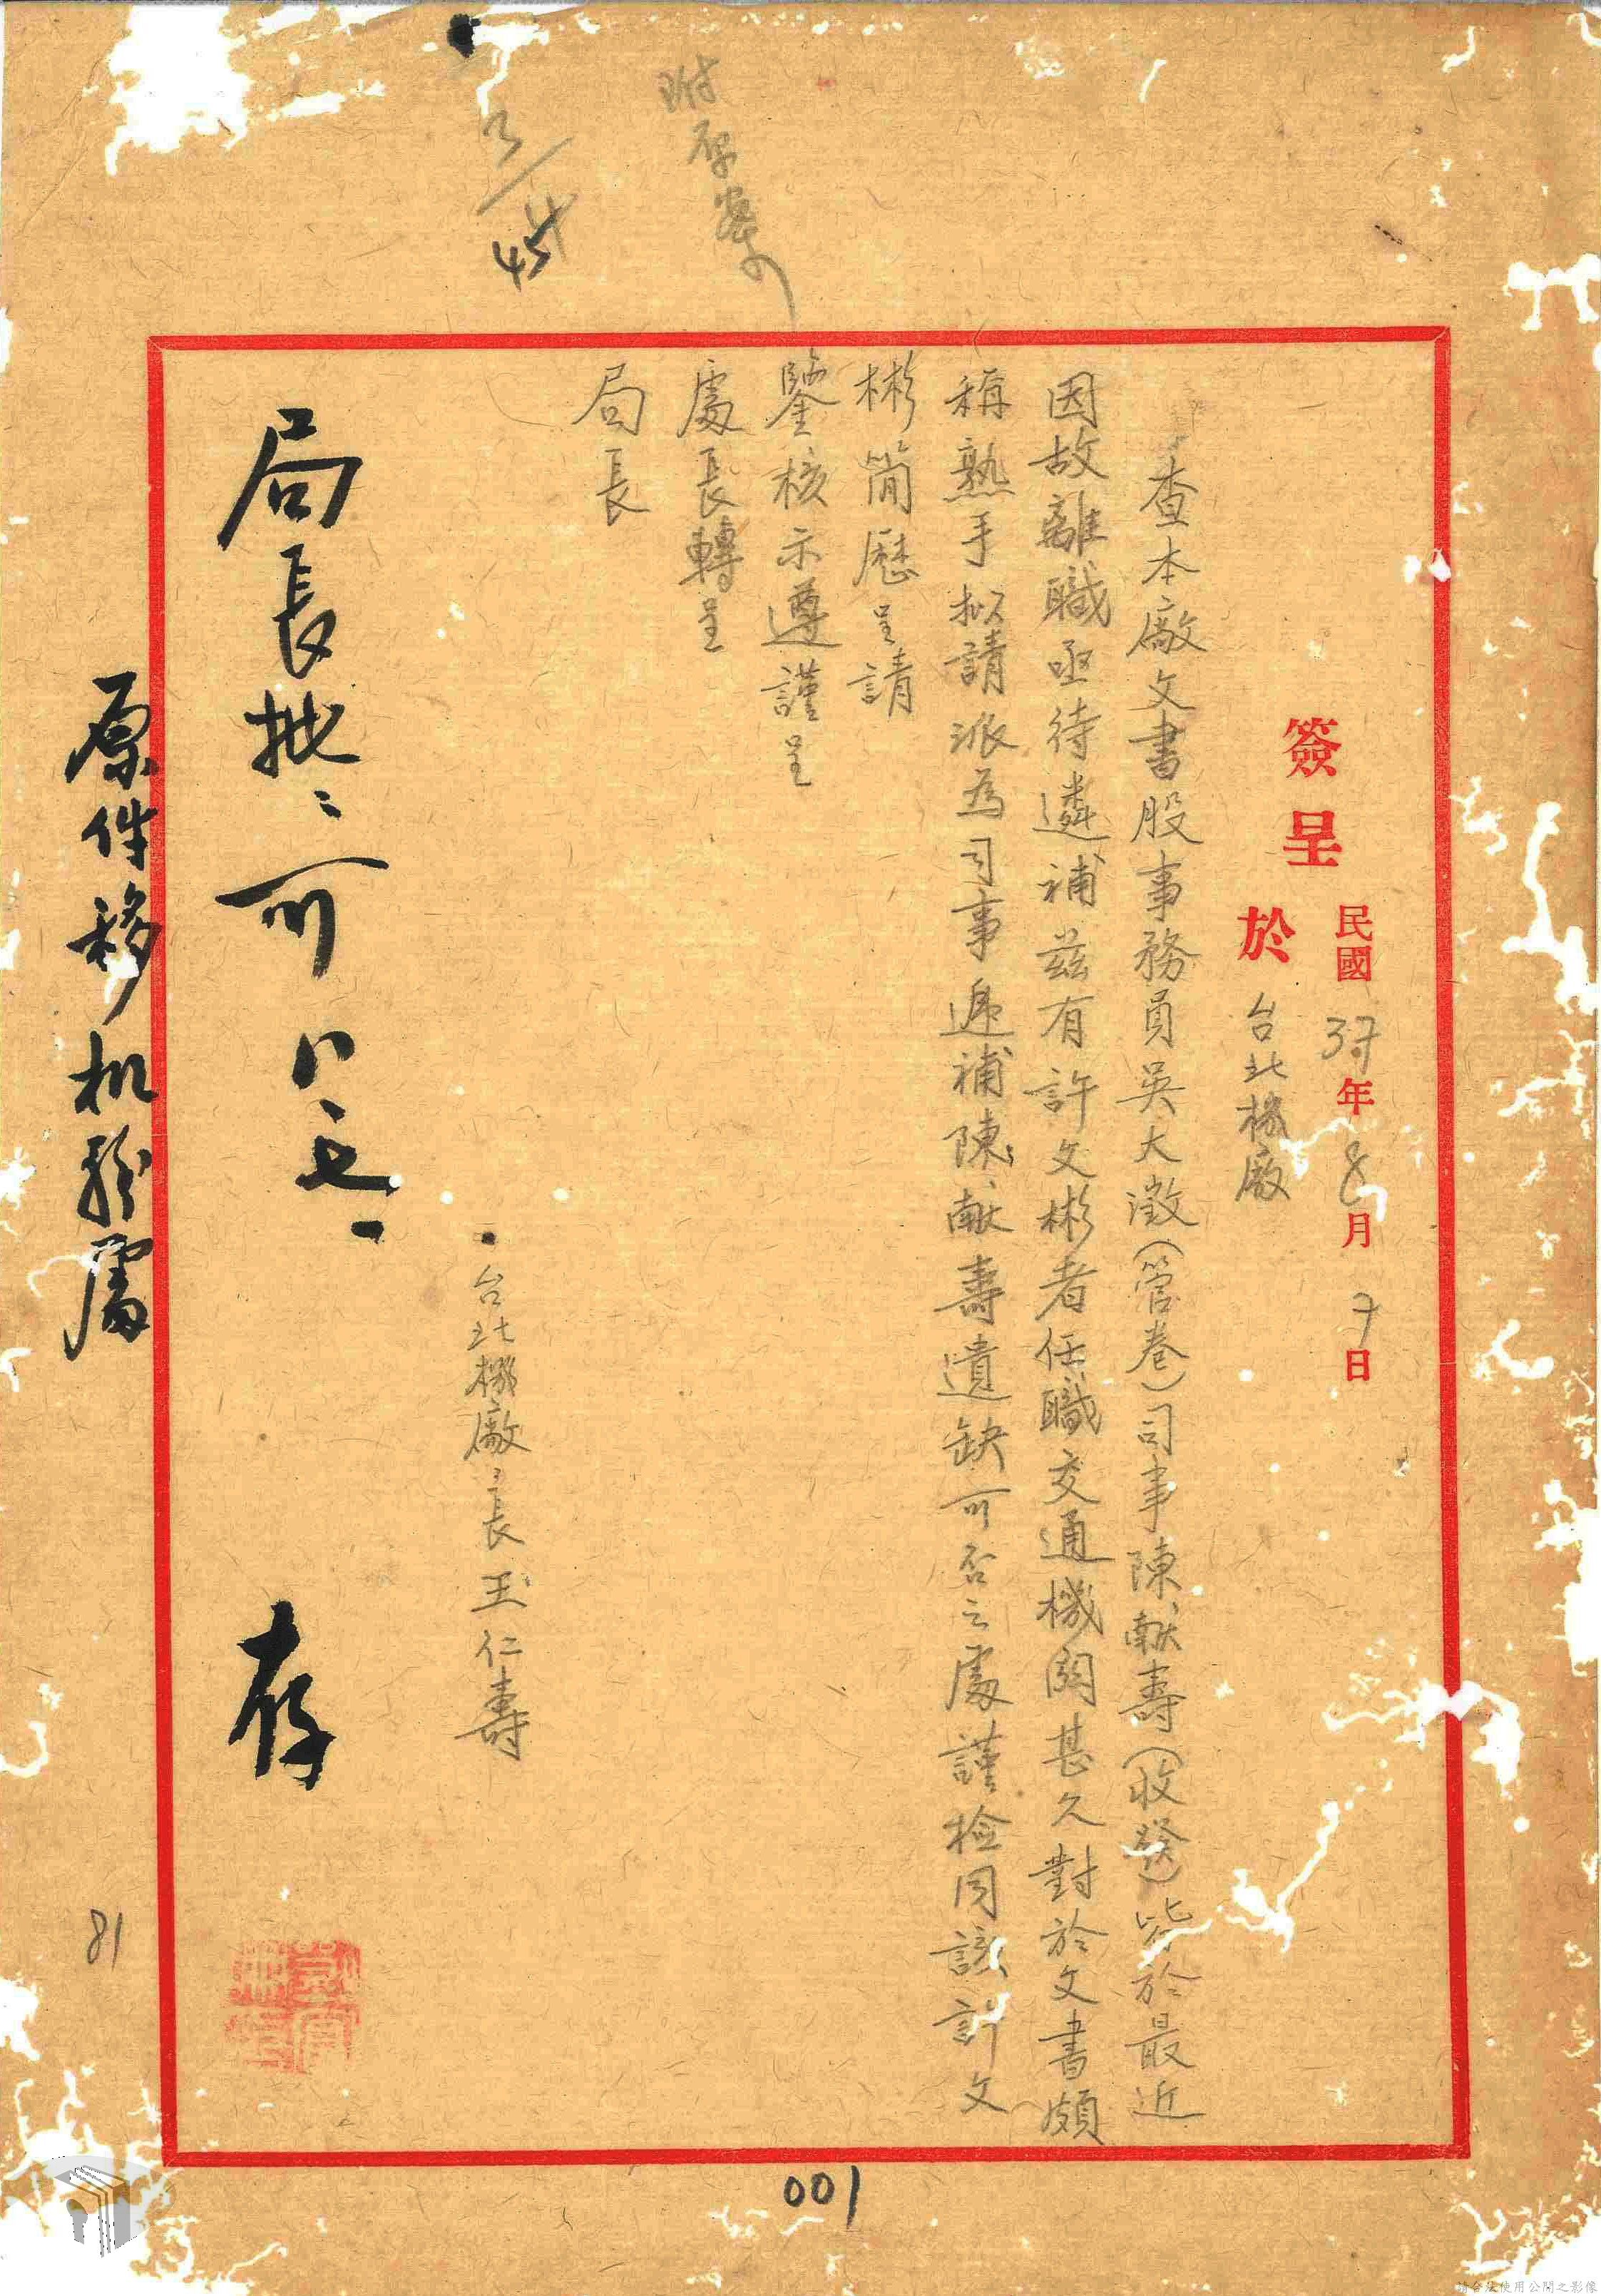 簽呈
民國 年8月 日
於台北機廠
查本廠文書股事務員吳大澂(管卷)司事陳献壽(收發)皆於最近
因故離職亟待遴補茲有許文彬者任職交通機関甚久對於文書頗
稱熟手擬請派為司事遞補陳献壽遺缺可否之處謹檢同該許文
彬簡歷呈請
鑒核示遵謹呈
處長轉呈
局長
台北機廠長王仁壽
局長批:可
存
原件移机務處
附原案
81
001